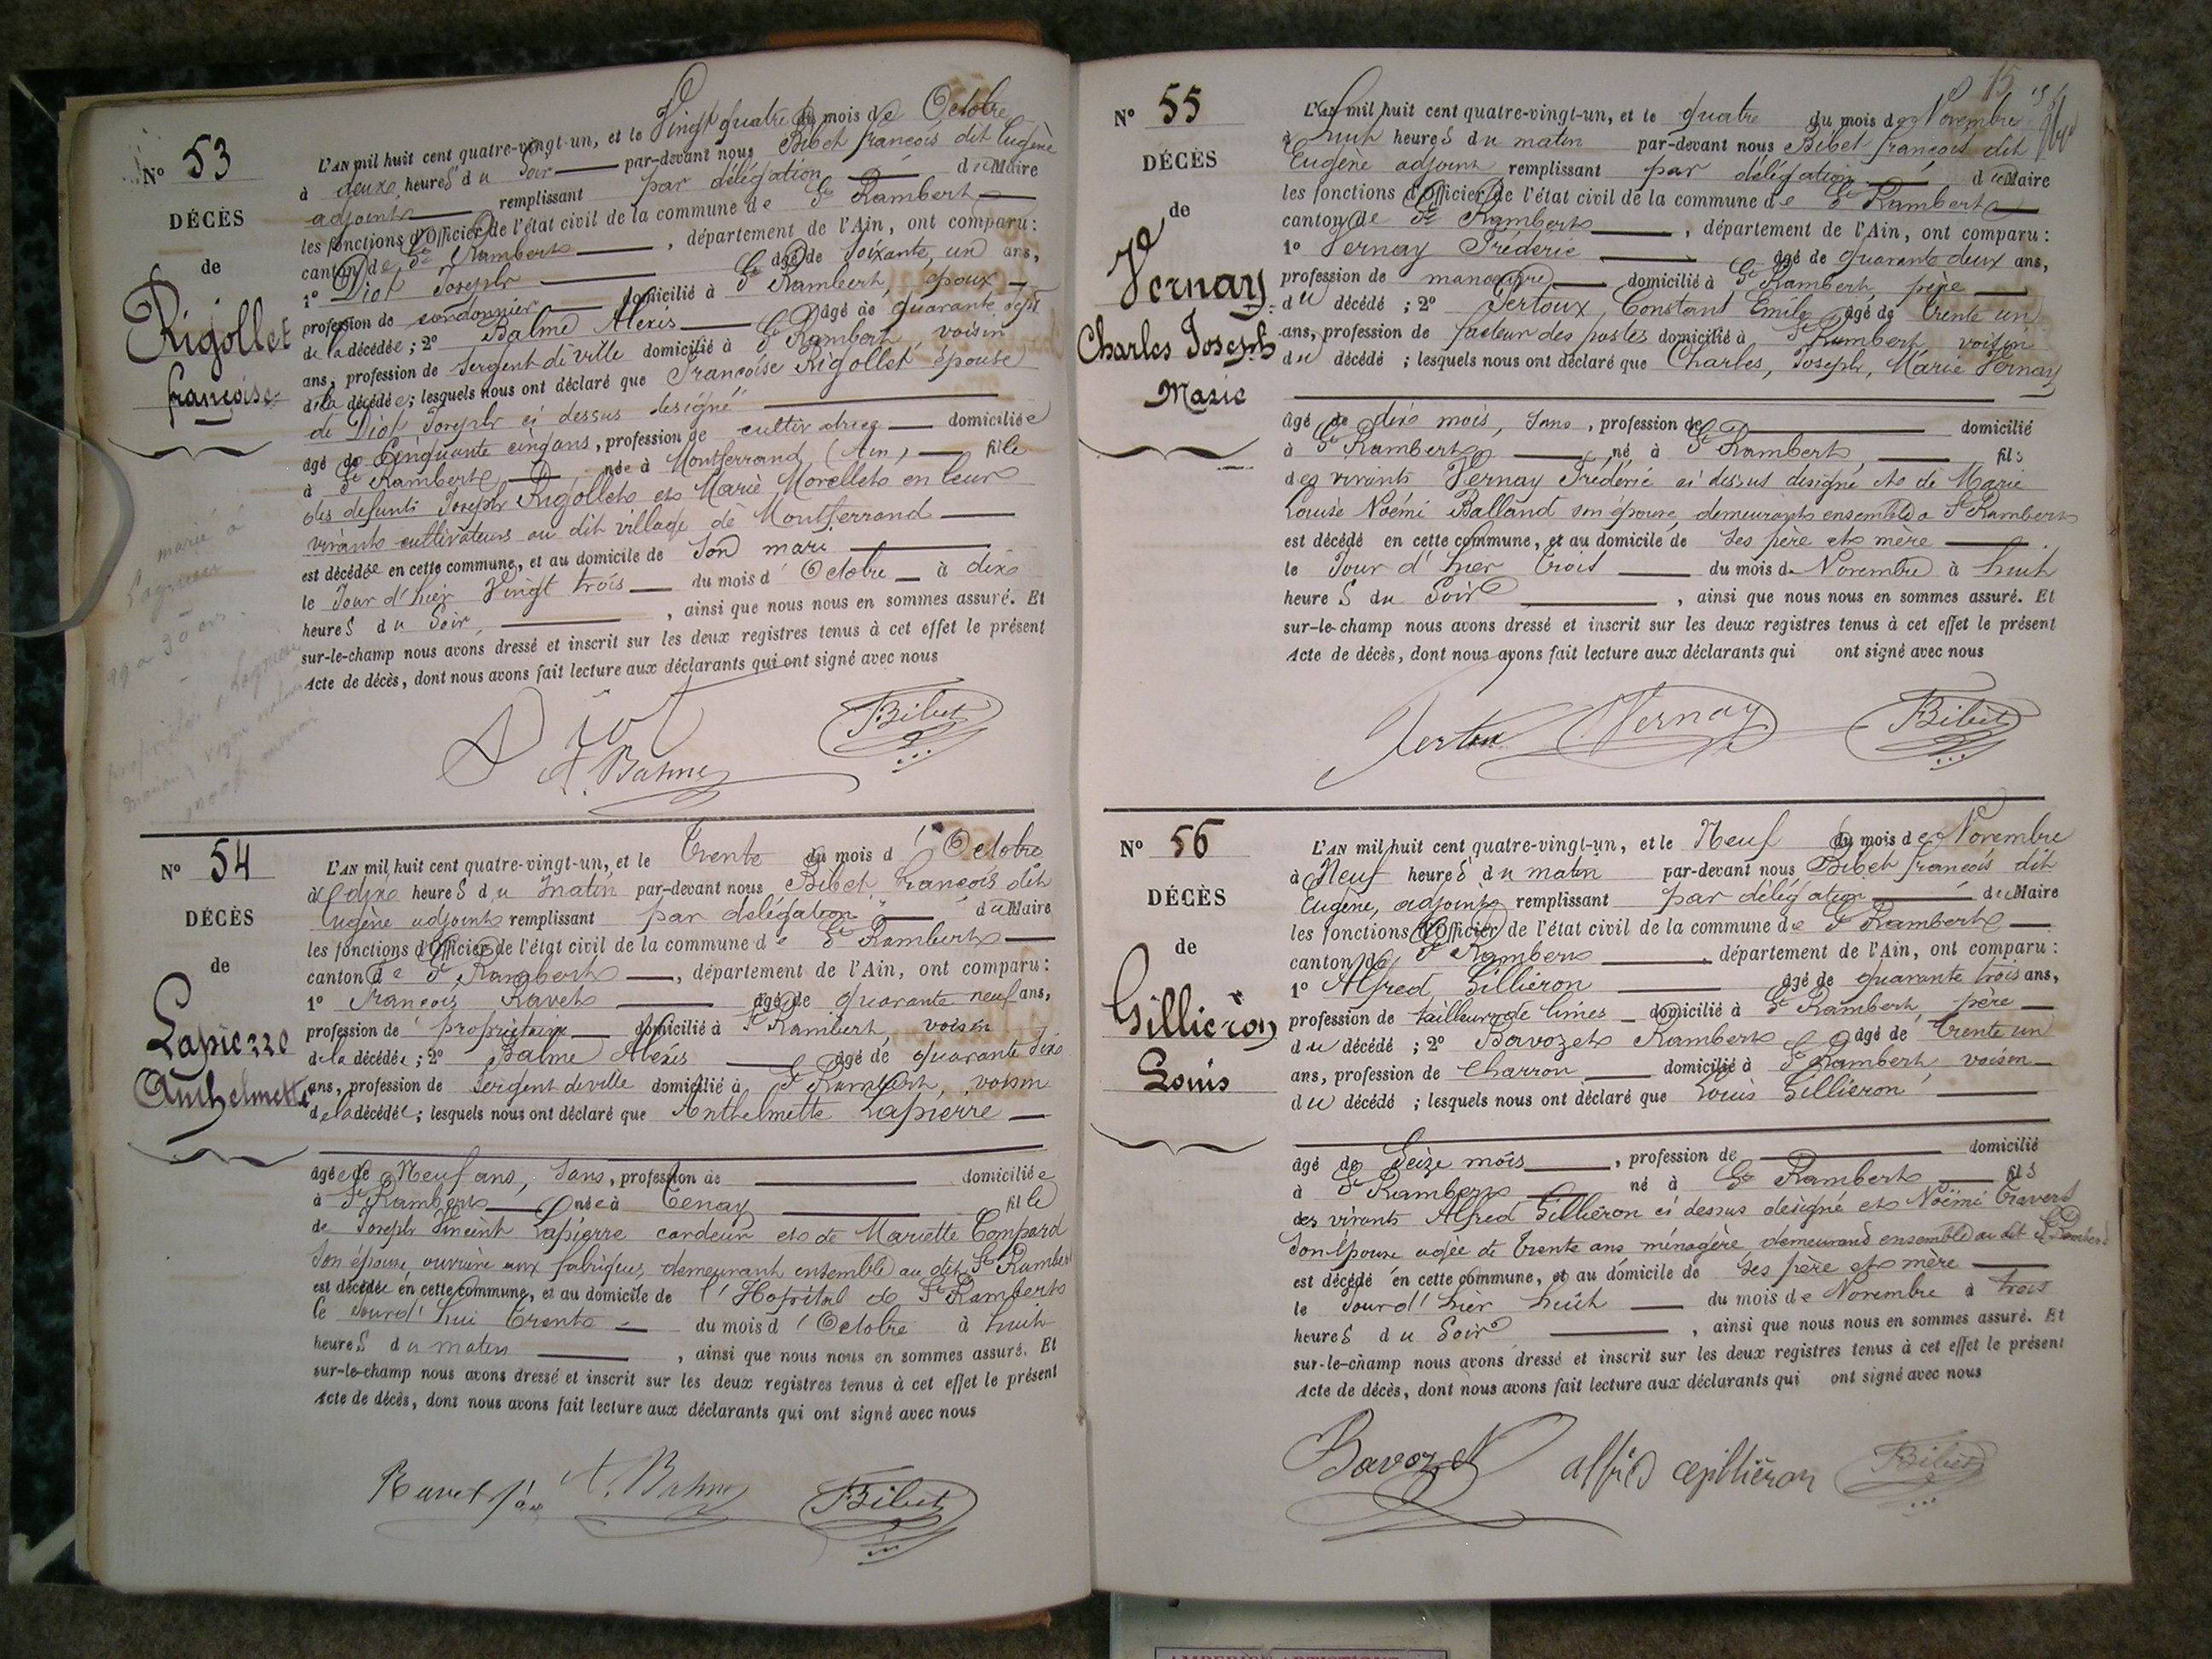 N° 53
DÉCÈS
de
Rigollet
françoise
L'AN mil huit cent quatre-vingt-un, et le Vingt quatre du mois de Octobre
à deux heures du Soir par-devant nous Bibet françois dit Eugène
adjoint remplissant par délégation du Maire
les fonctions d'Officier de l'état civil de la commune de St Rambert
canton de St Rambert, département de l'Ain, ont comparu :
1° Diot Joseph âgé de soixante un ans,
profession de cordonnier domicilié à St Rambert, époux
de la décédée ; 2° Balme Alexis âgé de quarante sept
ans, profession de Sergent de ville domicilié à St Rambert, voisin
de la décédée ; lesquels nous ont déclaré que Françoise Rigollet épouse
de Diot Joseph ci dessus designé
âgé de Cinquante cinq ans, profession de cultivatrice domiciliée
à St Rambert née à Montferrand (Ain) fille
des defunts Joseph Rigollet et Marie Morellet en leur
vivants cultivateurs au dit village de Montferrand
est décédée en cette commune, et au domicile de son mari
le Jour d'hier Vingt trois du mois d'Octobre à dix
heures du Soir, ainsi que nous nous en sommes assuré. Et
sur-le-champ nous avons dressé et inscrit sur les deux registres tenus à cet effet le présent
Acte de décès, dont nous avons fait lecture aux déclarants qui ont signé avec nous
Diot
A. Balme
F Bibet
marié à
Lagnieu
N° 54
DÉCÈS
de
Lapierre
Anthelmette
L'AN mil huit cent quatre-vingt-un, et le Trente du mois d'Octobre
à dix heures du matin par-devant nous Bibet françois dit
Eugène adjoint remplissant par délégation du Maire
les fonctions d'Officier de l'état civil de la commune de St Rambert
canton de St Rambert, département de l'Ain, ont comparu :
1° François Ravet âgé de quarante neuf ans,
profession de propriétaire domicilié à St Rambert, voisin
de la décédée ; 2° Balme Alexis âgé de quarante six
ans, profession de Sergent de ville domicilié à St Rambert, voisin
de la décédée ; lesquels nous ont déclaré que Anthelmette Lapierre
âgée de Neuf ans, Sans, profession de domiciliée
à St Rambert née à Tenay fille
de Joseph Vincent Lapierre cardeur et de Mariette Compard
son épouse, ouvrière aux fabriques, demeurant ensemble au dit St Rambert
est décédée en cette commune, et au domicile de l'Hopital de St Rambert
le Jourd'hui Trente du mois d'Octobre à huit
heures du matin, ainsi que nous nous en sommes assuré. Et
sur-le-champ nous avons dressé et inscrit sur les deux registres tenus à cet effet le présent
Acte de décès, dont nous avons fait lecture aux déclarants qui ont signé avec nous
Ravet
A. Balme
F Bibet
15
N° 55
DÉCÈS
de
Vernay
Charles Joseph
Marie
L'AN mil huit cent quatre-vingt-un, et le quatre du mois de Novembre
à huit heures du matin par-devant nous Bibet françois dit
Eugène adjoint remplissant par délégation du Maire
les fonctions d'Officier de l'état civil de la commune de St Rambert
canton de St Rambert, département de l'Ain, ont comparu :
1° Vernay Fréderic âgé de quarante deux ans,
profession de manœuvre domicilié à St Rambert, père
du décédé ; 2° Vertoux Constant Emile âgé de trente un
ans, profession de facteur des postes domicilié à St Rambert voisin
du décédé ; lesquels nous ont déclaré que Charles, Joseph, Marie Vernay
âgé de dix mois, Sans, profession de domicilié
à St Rambert, né à St Rambert, fils
des vivants Vernay Fréderic ci dessus designé et de Marie
Louise Noémi Balland son épouse, demeurants ensemble à St Rambert
est décédé en cette commune, et au domicile de ses père et mère.
le Jour d'hier trois du mois de Novembre à huit
heures du Soir, ainsi que nous nous en sommes assuré. Et
sur-le-champ nous avons dressé et inscrit sur les deux registres tenus à cet effet le présent
Acte de décès, dont nous avons fait lecture aux déclarants qui ont signé avec nous
Vernay
F Bibet
N° 56
DÉCÈS
de
Gilliéron
Louis
L'AN mil huit cent quatre-vingt-un, et le Neuf du mois de Novembre
à Neuf heures du matin par-devant nous Bibet françois dit
Eugène, adjoint remplissant par délégation du Maire
les fonctions d'Officier de l'état civil de la commune de St Rambert
canton de St Rambert, département de l'Ain, ont comparu :
1° Alfred Gilliéron âgé de quarante trois ans,
profession de tailleur de limes domicilié à St Rambert, père
du décédé ; 2° Bavozet Rambert âgé de trente un
ans, profession de Charron domicilié à St Rambert, voisin
du décédé ; lesquels nous ont déclaré que Louis Gilliéron
âgé de Seize mois, profession de domicilié
à St Rambert né à St Rambert fils
des vivants Alfred Gilliéron ci dessus désigné et Noëmi Travers
Son épouse agée de trente ans ménagère, demeurand ensemble au dit St Rambert
est décédé en cette commune, et au domicile de ses père et mère
le Jour d'hier huit du mois de Novembre à trois
heures du Soir, ainsi que nous nous en sommes assuré. Et
sur-le-champ nous avons dressé et inscrit sur les deux registres tenus à cet effet le présent
Acte de décès, dont nous avons fait lecture aux déclarants qui ont signé avec nous
Bavozet
alfred Gilliéron
F Bibet